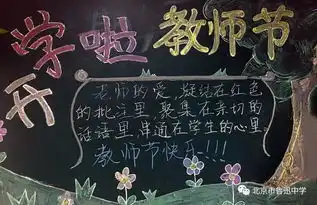 开学啦 教师节
老师的爱，凝结在红色
的批注里，聚集在亲切的
话语里，串通在学生的心里
教师节快乐!!!
北京市鲁迅中学